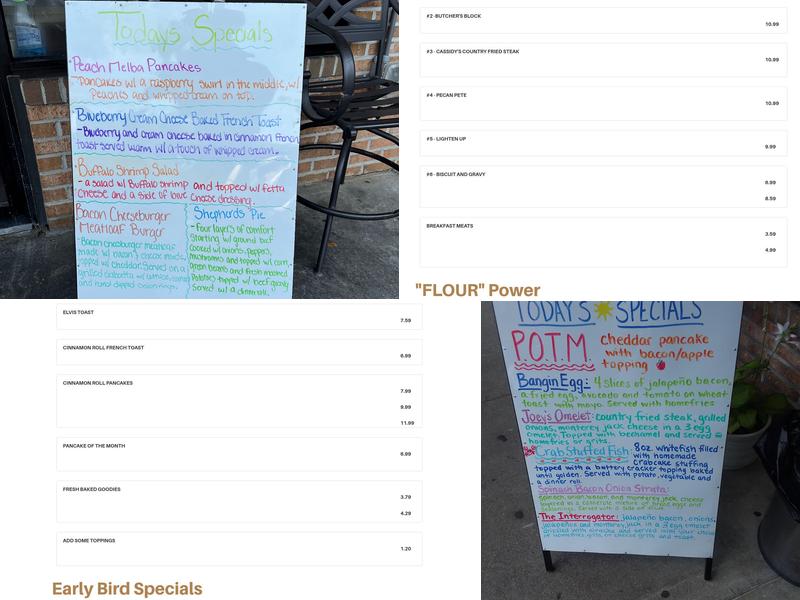 Todays Specials
Peach Melba Pancakes
-Pancakes w/ a raspberry swirl in the middle, w/
Peaches and whipped cream on top.
Blueberry Cream Cheese Baked French Toast
-Blueberry and cream cheese baked in cinnamon French
toast served warm w/ a touch of whipped cream.
Buffalo Shrimp Salad
- a salad w/ Buffalo shrimp and topped w/ fetta
cheese and a side of blue cheese dressing.
Bacon Cheeseburger
Meatloaf Burger
-Bacon cheesburger meatloaf
made w/ bacon & cheese inside,
topped w/ cheddar. Served on a
grilled
and fried onion rings.
Shepherds Pie
-Four layers of comfort
starting w/ ground beef
cooked w/ onions, peppers,
mushrooms and topped w/ corn,
green beans and fresh mashed
potatoes topped w/ beef gravy
Served w/ a dinner roll.
#2 -BUTCHER'S BLOCK
10.99
#3 - CASSIDY'S COUNTRY FRIED STEAK
10.99
#4 - PECAN PETE
10.99
#5 - LIGHTEN UP
9.99
#6 - BISCUIT AND GRAVY
6.99
8.59
BREAKFAST MEATS
3.59
4.99
"FLOUR" Power
ELVIS TOAST
7.59
CINNAMON ROLL FRENCH TOAST
6.99
CINNAMON ROLL PANCAKES
7.99
9.99
11.99
PANCAKE OF THE MONTH
6.99
FRESH BAKED GOODIES
3.79
4.29
ADD SOME TOPPINGS
1.20
Early Bird Specials
TODAY'S SPECIALS
P.O.T.M. cheddar pancake
with bacon/apple
topping
Bangin Egg: 4 slices of jalapeño bacon,
a fried egg, avocado and tomato on wheat
toast with mayo. Served with homefries
Joey's Omelet: country fried steak, grilled
onions, monterey jack cheese in a 3 egg
omelet. Topped with bechamel and served
homefries or grits.
Crab Stuffed Fish: 8oz. whitefish filled
with homemade
crabcake stuffing
topped with a buttery cracker topping baked
until golden. Served with potato, vegetable and
a dinner roll.
Spinach Bacon Onion Strata:
Spinach, onion, bacon, and monterey jack cheese
layered in a casserole mixture of bread, eggs and
seasonings. Served with a side of
The Interrogator: jalapeño bacon, onions,
jalapeños and monterey jack in a 3 egg omelet
with sriracha and served with your choice
of homefries, grits, or cheesy grits and toast.